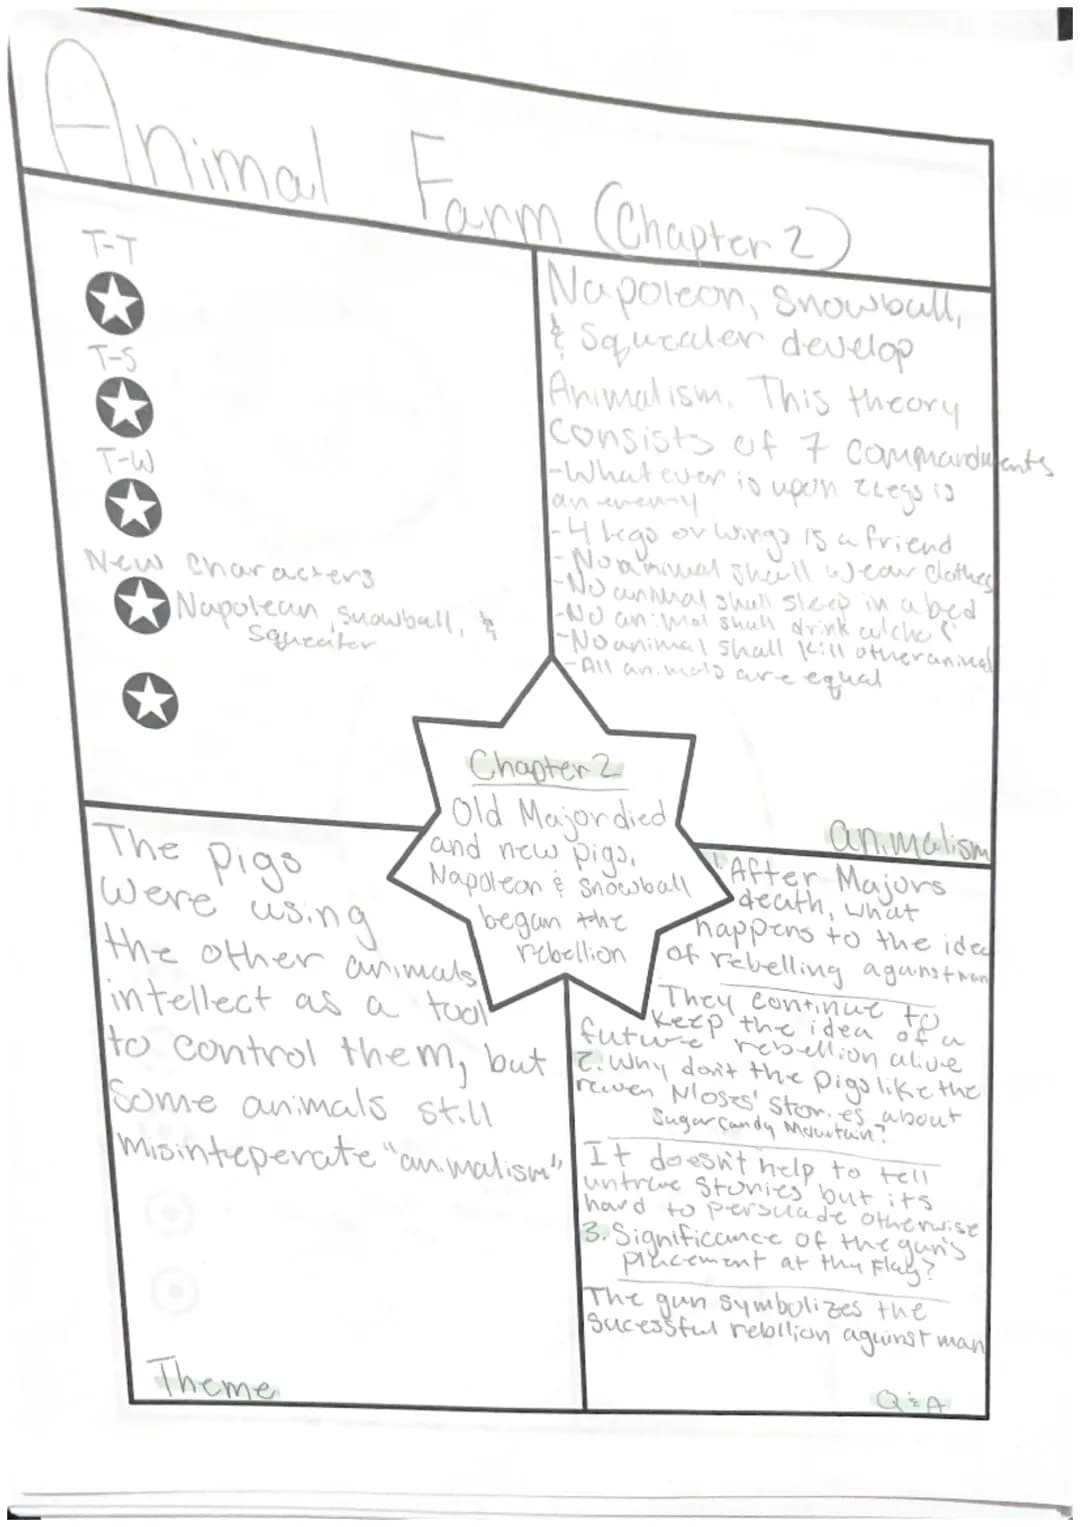 Animal Farm (Chapter 2)
T-T
T-S
T-W
New Characters
Napolean, Snowball, &
Squealer
Napoleon, Snowball,
& Squealer develop
Animalism. This theory
consists of 7 commandments
-Whatever is upon 2 legs is
an enemy
-4 legs or wings is a friend
-No animal shall wear clothes
-No animal shall sleep in a bed
-No animal shall drink
-No animal shall kill other animal
-All animals are equal
animalism
Chapter 2
Old Major died
and new pigs,
Napoleon & Snowball
began the
rebellion
The pigs
were using
the other animals
intellect as a tool
to control them, but
some animals still
misinteperate "animalism"
Theme
1. After Majors
death, what
happens to the idea
of rebelling against man
They continue to
keep the idea of a
future rebellion alive
2. Why don't the pigs like the
raven Moses' stories about
Sugarcandy Mountain?
It doesn't help to tell
untrue stories but its
hard to persuade otherwise
3. Significance of the gun's
placement at the Flag?
The gun symbolizes the
sucessful rebllion against man
Q & A